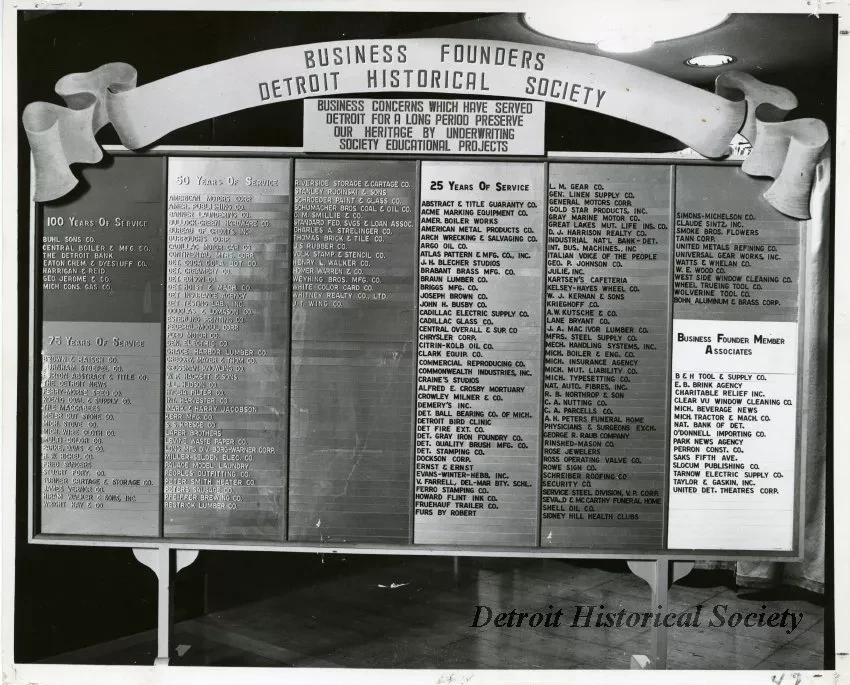 BUSINESS FOUNDERS
DETROIT HISTORICAL SOCIETY
BUSINESS CONCERNS WHICH HAVE SERVED
DETROIT FOR A LONG PERIOD PRESERVE
OUR HERITAGE BY UNDERWRITING
SOCIETY EDUCATIONAL PROJECTS
100 YEARS OF SERVICE
BUHL SONS CO.
CENTRAL BOILER & MFG. CO.
THE DETROIT BANK
EATON CHEM & DYESTUFF CO.
HARRIGAN & REID
GEO. JEROME & CO.
MICH CONS. GAS CO.
75 YEARS OF SERVICE
THE DETROIT NEWS
FERRY-MORSE SEED CO.
THE MACCABEES
MICH STOVE CO.
MULTI-COLOR CO.
FRED SANDERS
TURNER CARTAGE & STORAGE CO.
JAMES VERNOR CO.
HIRAM WALKER & SONS, INC.
WRIGHT KAY & CO.
50 YEARS OF SERVICE
AMERICAN MOTORS CORP.
DET. CREAMERY CO.
DET. INSURANCE AGENCY
DET. TESTING LAB. INC.
DOUGLAS & LOMASON CO.
FEDERAL MOGUL CORP.
FORD MOTOR CO.
GRACE HARBOR LUMBER CO.
J. L. HUDSON CO.
MARK & HARRY JACOBSON
S. S. KRESGE CO.
LEWIS WASTE PAPER CO.
LONG MFG. DIV. BORG-WARNER CORP.
MILLER-SELDON ELEC. CO.
PALACE MODEL LAUNDRY
PEOPLES OUTFITTING CO.
PETER SMITH HEATER CO.
PETERS SAUSAGE CO.
PFEIFFER BREWING CO.
RESTRICK LUMBER CO.
RIVERSIDE STORAGE & CARTAGE CO.
STANLEY RUCINSKI & SONS
SCHROEDER PAINT & GLASS CO.
SCHUMACHER BROS COAL & OIL CO.
C. M. SMILLIE & CO.
STANDARD FED. SVGS & LOAN ASSOC.
CHARLES A. STRELINGER CO.
THOMAS BRICK & TILE CO.
U. S. RUBBER CO.
VOLK STAMP & STENCIL CO.
HENRY L. WALKER CO.
HOMER WARREN & CO.
WEYHING BROS. MFG. CO.
WHITE COLOR CARD CO.
WHITNEY REALTY CO., LTD.
J. T. WING CO.
25 YEARS OF SERVICE
ABSTRACT & TITLE GUARANTY CO.
ACME MARKING EQUIPMENT CO.
AMER. BOILER WORKS
AMERICAN METAL PRODUCTS CO.
ARCH WRECKING & SALVAGING CO.
ARGO OIL CO.
ATLAS PATTERN & MFG. CO., INC.
J. H. BLECHER STUDIOS
BRABANT BRASS MFG. CO.
BRAUN LUMBER CO.
BRIGGS MFG. CO.
JOSEPH BROWN CO.
JOHN H. BUSBY CO.
CADILLAC ELECTRIC SUPPLY CO.
CADILLAC GLASS CO.
CENTRAL OVERALL & SUP. CO
CHRYSLER CORP.
CITRIN-KOLB OIL CO.
CLARK EQUIP. CO.
COMMERCIAL REPRODUCING CO.
COMMONWEALTH INDUSTRIES, INC.
CRAINE'S STUDIOS
ALFRED E. CROSBY MORTUARY
CROWLEY MILNER & CO.
DEMERY'S INC.
DET. BALL BEARING CO. OF MICH.
DETROIT BIRD CLINIC
DET FIRE EXT. CO.
DET. GRAY IRON FOUNDRY CO.
DET. QUALITY BRUSH MFG. CO.
DET. STAMPING CO.
DOCKSON CORP.
ERNST & ERNST
EVANS-WINTER-HEBB, INC.
V. FARRELL, DEL-MAR BTY. SCHL.
FERRO STAMPING CO.
HOWARD FLINT INK CO.
FRUEHAUF TRAILER CO.
FURS BY ROBERT
L. M. GEAR CO.
GEN. LINEN SUPPLY CO.
GENERAL MOTORS CORP.
GOLD STAR PRODUCTS, INC.
GRAY MARINE MOTOR CO.
GREAT LAKES MUT. LIFE INS. CO.
D. J. HARRISON REALTY CO.
INDUSTRIAL NAT'L BANK - DET.
INT. BUS. MACHINES, INC
ITALIAN VOICE OF THE PEOPLE
GEO. P. JOHNSON CO.
JULIE, INC.
KARTSEN'S CAFETERIA
KELSEY-HAYES WHEEL CO.
W. J. KERNAN & SONS
KRIEGHOFF CO.
A. W. KUTSCHE & CO.
LANE BRYANT CO.
J. A. MAC IVOR LUMBER CO.
MFRS. STEEL SUPPLY CO.
MECH. HANDLING SYSTEMS, INC.
MICH. BOILER & ENG. CO.
MICH. INSURANCE AGENCY
MICH. MUT. LIABILITY CO.
MICH. TYPESETTING CO.
NAT. AUTO. FIBRES, INC.
R. B. NORTHROP & SON
C. A. NUTTING CO.
C. A. PARCELLS CO.
A. H. PETERS FUNERAL HOME
PHYSICIANS & SURGEONS EXCH.
GEORGE R. RAUB COMPANY
RINSHED-MASON CO.
ROSE JEWELERS
ROSS OPERATING VALVE CO.
ROWE SIGN CO.
SCHREIBER ROOFING CO
SECURITY CO.
SERVICE STEEL DIVISION, V. P. CORP.
SEVALD & MCCARTHY FUNERAL HOME
SHELL OIL CO.
SIDNEY HILL HEALTH CLUBS
SIMONS-MICHELSON CO.
CLAUDE SINTZ, INC.
SMOKE BROS. FLOWERS
TANN CORP.
UNITED METALS REFINING CO.
UNIVERSAL GEAR WORKS, INC.
WATTS & WHELAN CO.
W. E. WOOD CO.
WEST SIDE WINDOW CLEANING CO.
WHEEL TRUEING TOOL CO.
WOLVERINE TOOL CO.
BOHN ALUMINUM & BRASS CORP.
BUSINESS FOUNDER MEMBER
ASSOCIATES
B & H TOOL & SUPPLY CO.
E. B. BRINK AGENCY
CHARITABLE RELIEF INC.
CLEAR VU WINDOW CLEANING CO.
MICH. BEVERAGE NEWS
MICH. TRACTOR & MACH. CO.
NAT. BANK OF DET.
O'DONNELL IMPORTING CO.
PARK NEWS AGENCY
PERRON CONST. CO.
SAKS FIFTH AVE.
SLOCUM PUBLISHING CO.
TARNOW ELECTRIC SUPPLY CO.
TAYLOR & GASKIN, INC.
UNITED DET. THEATRES CORP.
Detroit Historical Society